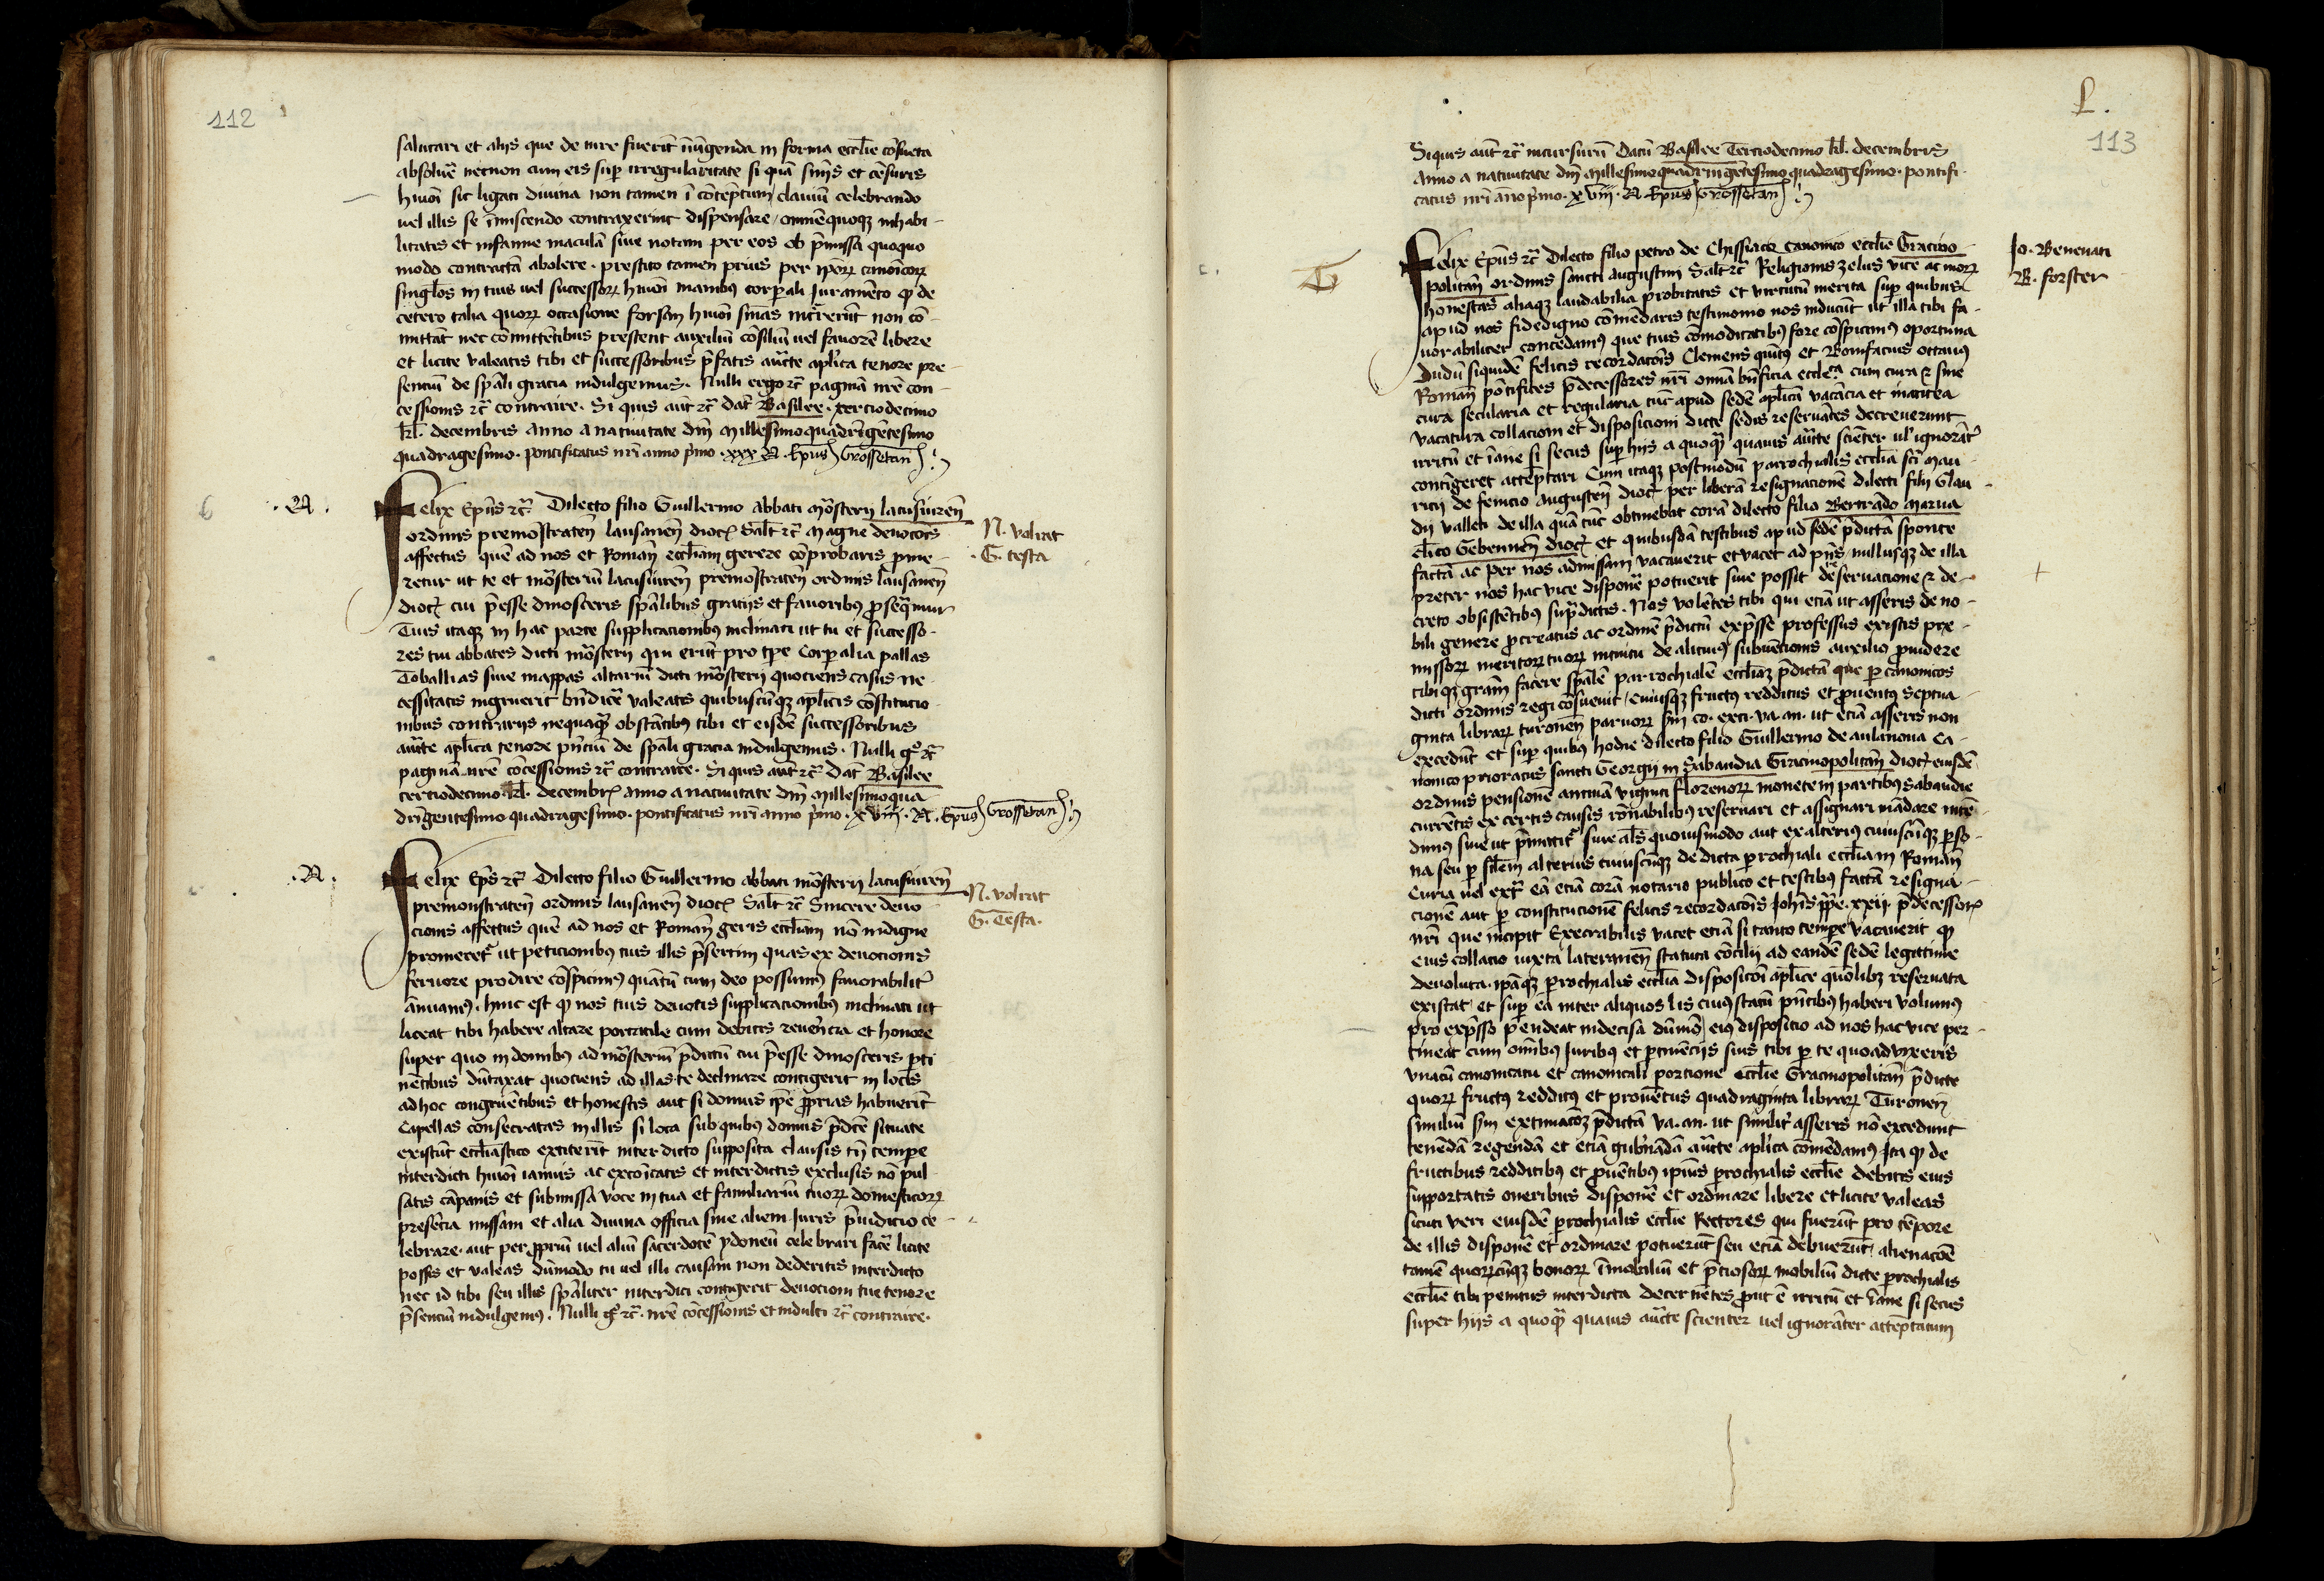 112
salutari et alijs que de iure fuerit iniũgenda in forma ecclie cõsueta
absoluẽ necnon cum eis sup irregularitate si quã sniis et cẽsuris
hmõi sic ligati diuina non tamen ĩ cõtẽptum clauiũ celebrando
uel illis se ĩmiscendo contraxerint dispensare, omnẽquoqz inhabi-
litatis et infamie maculã siue notam per eos ob p̃missa quoquo
modo contractã abolere. prestito tamen prius per ip̃oꝝ canoĩcoꝝ
singĺos in tuis uel successoꝝ hmõi manibus corpali Juramẽto ꝙ de
cetero talia quoꝝ occasione forsan hmõi snĩas incrrerĩt non cõ-
mittãt nec cõmittẽtibus prestent auxiliũ cõsiliũ uel fauorẽ libere
et licite valeatis tibi et successoribus p̃fatis aucte aplica tenore pre-
sentiũ de spãli gracia indulgemus. Nulli ergo ꝛc̃ paginã nrẽ con-
cessionis ꝛc̃ contraire. Si quis aut̃ ꝛc̃ dat̃ Basilee. terciodecimo
kl. decembris anno a natiuitate dñi Millesimoquadrĩgẽtesimo
quadragesimo. pontificatus nr̃i anno p̃mo. xxx A. Ep̃us Grossetañ
.A.
Felix Ep̃us ꝛc̃ Dilecto filio Guillermo Abbati mõsterij lacusiureñ
ordinis premonstrateñ lausaneñ dioc̃ Salt̃ ꝛc̃ Magne deuocõis
affectus quẽ ad nos et Romañ eccliam gerere cõprobaris prome-
retur ut te et mõsteriũ lacusiureñ premonstrateñ ordinis lausaneñ
dioc̃ cui p̃esse dinosceris spãlibus gracijs et fauoribus prosequamur
Tuis itaqz in hac parte supplicacionibus inclinati ut tu et successo-
res tui abbates dicti mõsterij qui erũt pro tp̃e Corpalia pallas
Toballias siue mappas altariũ dicti mõsterij quociens casus ne-
cessitatis ingruerit bn̄dicẽ valeatis quibuscũqz aplicis cõstitucio-
nibus contrarijs nequaqᷓ obstãtibus tibi et eisdẽ successoribus
aucte aplica tenore pñciũ de spãli gracia indulgemus. Nulli gͦ ꝛc̃
paginã nrẽ cõcessionis ꝛc̃ contraire. Si quis aut̃ ꝛc̃ Dat̃ Basilee
terciodecimo kl. decembr̃ anno a natiuitate dñi Millesimoqua-
drĩgentesimo quadragesimo. pontificatus nr̃i anno p̃mo. xviij. A. Ep̃us Grossetañ
N. voltrat
G. testa
.A.
Felix Ep̃s ꝛc̃ Dilecto filio Guillermo abbati mõsterij lacusiureñ
premonstrateñ ordinis lausaneñ dioc̃ Salt̃ ꝛc̃ Sincere deuo-
cionis affectus quẽ ad nos et Romañ geris eccliam nõ indigne
promeret̃ ut peticionibus tuis illis p̃sertim quas ex deuocionis
feruore prodire cõspicimus quãtũ cum deo possumus fauorabilit̃
ãnuamus. hinc est ꝙ nos tuis deuotis supplicacionibus inclinati ut
liceat tibi habere altare portatile cum debitis reuerẽcia et honore
super quo in domibus ad mõsteriũ p̃dictũ cui p̃esse dinosceris pti-
nẽtibus dũtaxat quociens ad illas te declinare contigerit in locis
ad hoc congruẽtibus et honestis aut si domus ip̃e proprias habuerit̃
Capellas consecratas in illis si loca sub quibus domus p̃dcẽ situate
existũt eccliastico extiterit̃ interdicto supposita clausis tñ tempore
interdicti hmõi ianuis ac excõicatis et interdictis exclusis nõ pul-
satis cãpanis et submissa voce in tua et familiariũ tuoꝝ domesticoꝝ
presẽcia missam et alia diuina officia sine alieni Juris p̃iudicio ce-
lebrare. aut per propriũ uel aliũ sacerdotẽ ydoneũ celebrari facẽ licite
possis et valeas dũmodo tu uel illi causam non dederitis interdicto
nec id tibi seu illis spãliter interdici contigerit deuocioni tue tenore
p̃senciũ indulgemus. Nulli gͦ ꝛc̃. nrẽ cõcessionis et indulti ꝛc̃ contraire.
N. voltrat
G. Testa.
L.
113
Siquis aut̃ ꝛc̃ incursurũ Datũ Basilee Terciodecimo kl. decembris
Anno a natiuitate dñi Millesimoquadrĩngẽtesimo quadragesimo. pontifi-
catus nr̃i ãno p̃mo. xviij. A. Ep̃us Grossetañ
Felix Ep̃us ꝛc̃ Dilecto filio petro de Chissiaco Canonico ecclie Gracino-
politañ ordinis sancti Augustini Salt̃ ꝛc̃ Religionis zelus vite ac moꝝ
honestas aliaqz laudabilia probitatis et virtutũ merita sup quibus
apud nos fidedigno cõmẽdaris testimonio nos inducũt ut illa tibi fa-
uorabiliter concedamus que tuis cõmoditatibus fore cõspicimus oportuna
Dudũ siquidẽ felicis recordacõis Clemens quĩtus et Bonifacius octauus
Romañ põtifices p̃decessores nr̃i omĩa bñficia eccleca cum cura ⁊ sine
cura secularia et regularia tũc apud sedẽ aplicã vacãcia et inantea
vacatura collacioni et disposicioni dicte sedis reseruãtes decreuerunt
irritũ et ĩane si secus sup hijs a quoqᷓ quauis aucte sciẽter ul' ignorãt̃
contĩgeret attẽptari Cum itaqz postmodũ parrochialis ecclia sc̃i Mau-
ricij de fenicio Augusteñ dioc̃ per liberã resignacionẽ dilecti filij Glau-
dij valleti de illa quã tũc obtinebat corã dilecto filio Bertrãdo Marua
clico Gebenneñ dioc̃ et quibusdã testibus apud sedẽ p̃dictã sponte
factã ac per nos admissam vacauerit et vacet ad pñs nullusqz de illa
preter nos hac vice disponẽ potuerit siue possit reseruacione ⁊ de-
creto obsistẽtibus sup̃dictis. Nos volẽtes tibi qui eciã ut asseris de no-
bili genere procreatus ac ordinẽ p̃dictũ exp̃sse professus existis pre-
missoꝝ meritoꝝ tuoꝝ intuitu de alicuius subuẽcionis auxilio prouidere
tibi qz gram̃ facere spãlẽ parrochialẽ eccliaz p̃dictã que p canonicos
dicti ordinis regi cõsueuit, cuiusqz fructus redditus et prouentus septua-
ginta libraꝝ turoneñ paruoꝝ sm co. exti. va. an. ut eciã asseris non
excedũt et sup quibus hodie dilecto filio Guillermo de aulanoua Ca-
nonico prioratus sancti Georgij in Sabaudia Gracinopolitañ dioc̃ eiusdẽ
ordinis pensionẽ annuã viginti florenoꝝ monete in partibus Sabaudie
currẽtis ex certis causis rõnabilibus reseruari et assignari mãdare intẽ-
dimus siue ut p̃mittit̃ siue als quouismodo aut ex alterius cuiuscũqz perso-
na seu p silem alterius cuiuscũqz de dicta parochiali ecclia in Romañ
Curia uel ext̃ eã eciã corã notario publico et testibus factã resigna-
cionẽ aut p constitucionẽ felicis recordacõis Johis pp̃e. xxij. p̃decessor̃
nr̃i que incipit Execrabilis vacet eciã si tanto tempore vacauerit ꝙ
eius collacio iuxta lateraneñ statuta cõcilij ad eandẽ sedẽ legittime
deuoluta. ip̃aqz parochialis ecclia disposicõi aplice quõlibz reseruata
existat, et sup ea inter aliquos lis cuius statũ pñtibus haberi volumus
pro exp̃sso pendeat indecisa dũmõ eius disposicio ad nos hac vice per-
tineat cum oĩibus Juribus et ptinẽcijs suis tibi p te quoaduixeris
vnacũ canonicatu et canonicali porcione ecclie Gracinopolitañ p̃dicte
quoꝝ fructus redditus et prouẽtus quadraginta libraꝝ Turoneñ
similiũ sm extimacõz p̃dictã va. an. ut similit̃ asseris nõ excedunt
tenẽdã regendã et eciã gubñãdã aucte aplica cõmẽdamus, Ita ꝙ de
fructibus redditibus et prouẽtibus ipius parochialis ecclie debitis eius
supportatis oneribus disponẽ et ordinare libere et licite valeas
sicuti veri eiusdẽ parochialis ecclie Rectores qui fuerũt pro tẽpore
de illis disponẽ et ordinare potuerũt seu eciã debuerũt, alienacõẽ
tamẽ quoꝝcũqz bonoꝝ ĩmobiliũ et p̃ciosoꝝ mobiliũ dicte parochialis
ecclie tibi penitus interdicta decernẽtes prout ẽ irritũ et ĩane si secus
super hijs a quoqᷓ quauis aucte scienter uel ignorãter attẽptatum
Jo. Beneuati
B. forster